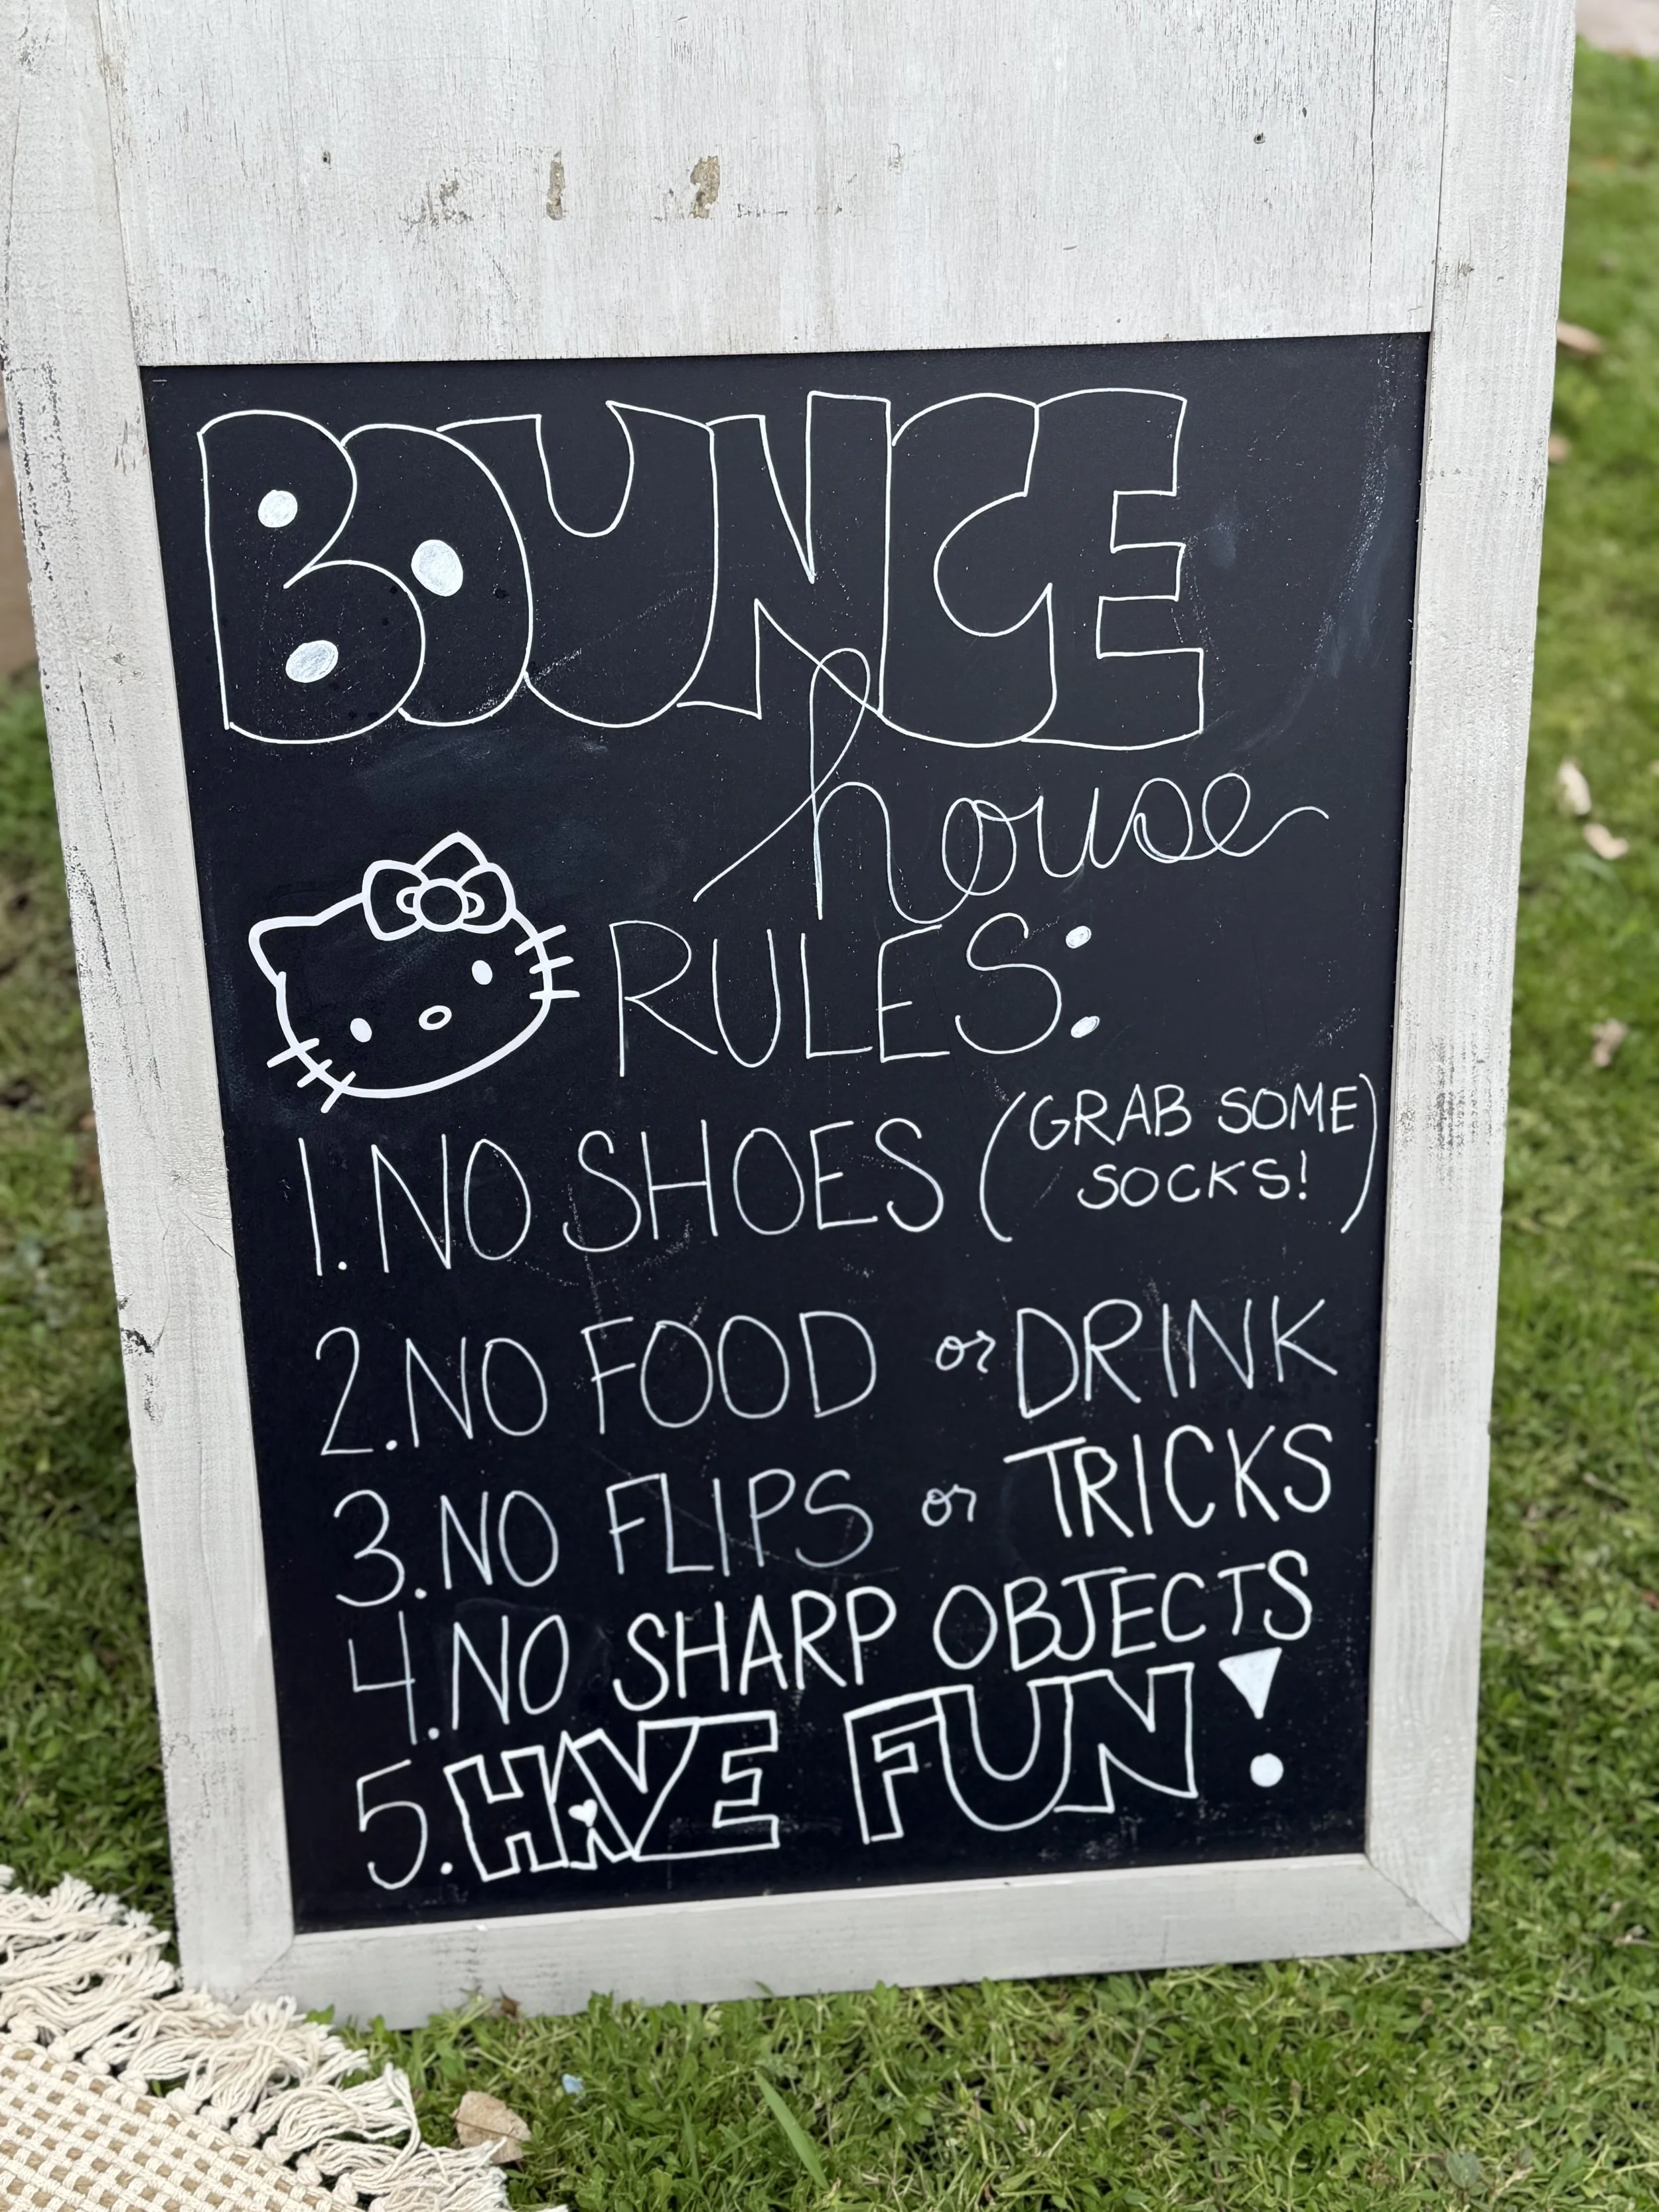 BOUNCE
house
RULES:
1. NO SHOES (GRAB SOME
SOCKS!)
2. NO FOOD or DRINK
3. NO FLIPS or TRICKS
4. NO SHARP OBJECTS
5. HAVE FUN!